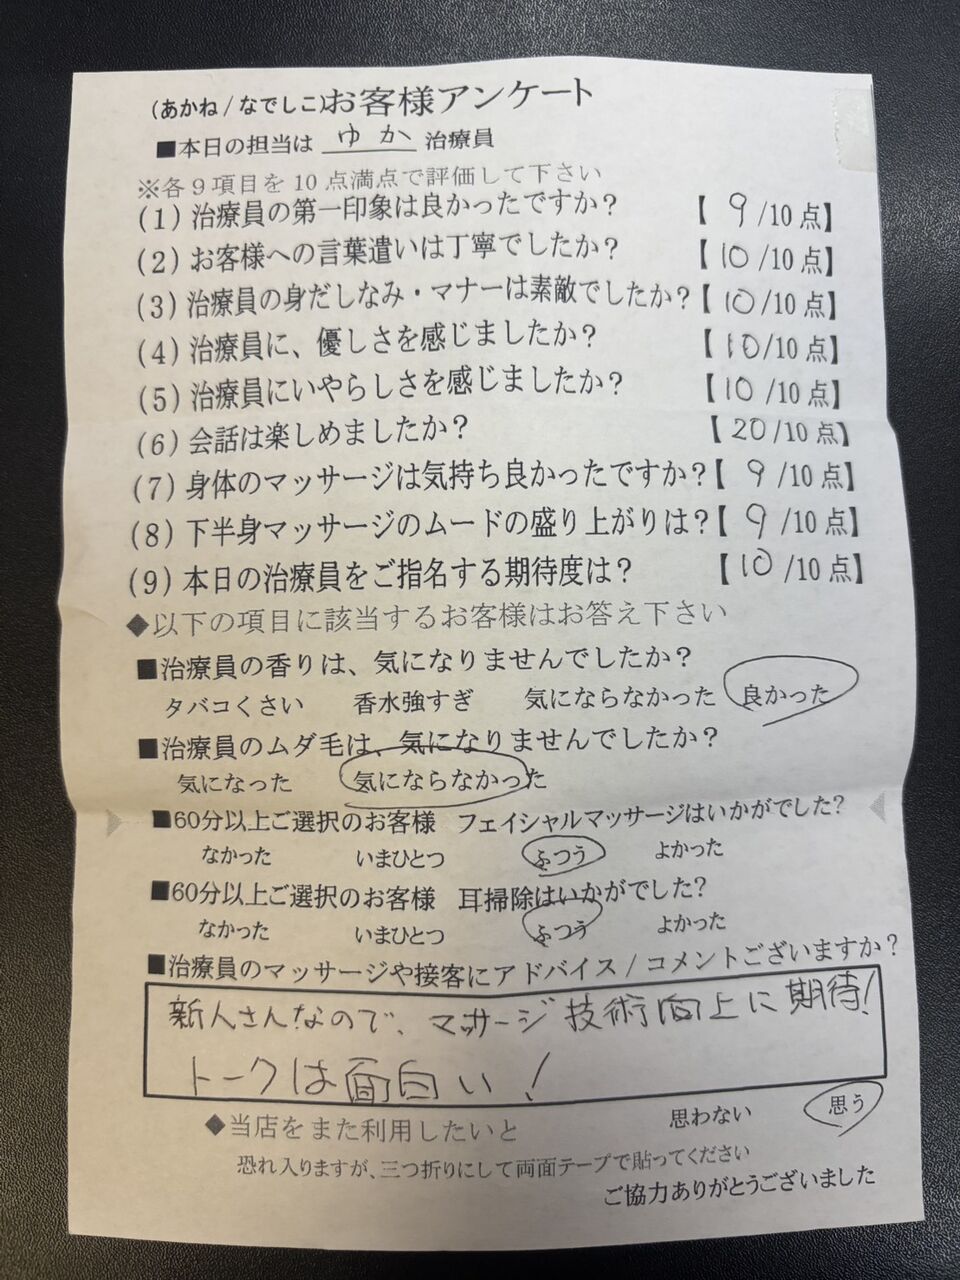 (あかね/なでしこ)お客様アンケート
■本日の担当は ゆか 治療員
※各9項目を10点満点で評価して下さい
(1)治療員の第一印象は良かったですか?【9/10点】
(2)お客様への言葉遣いは丁寧でしたか?【10/10点】
(3)治療員の身だしなみ・マナーは素敵でしたか?【10/10点】
(4)治療員に、優しさを感じましたか?【10/10点】
(5)治療員にいやらしさを感じましたか?【10/10点】
(6)会話は楽しめましたか?【20/10点】
(7)身体のマッサージは気持ち良かったですか?【9/10点】
(8)下半身マッサージのムードの盛り上がりは?【9/10点】
(9)本日の治療員をご指名する期待度は?【10/10点】
◆以下の項目に該当するお客様はお答え下さい
■治療員の香りは、気になりませんでしたか?
タバコくさい 香水強すぎ 気にならなかった 良かった
■治療員のムダ毛は、気になりませんでしたか?
気になった 気にならなかった
■60分以上ご選択のお客様 フェイシャルマッサージはいかがでした?
なかった いまひとつ ふつう よかった
■60分以上ご選択のお客様 耳掃除はいかがでした?
なかった いまひとつ ふつう よかった
■治療員のマッサージや接客にアドバイス/コメントございますか?
新人さんなので、マッサージ技術向上に期待!
トークは面白い!
◆当店をまた利用したいと 思わない 思う
恐れ入りますが、三つ折りにして両面テープで貼ってください
ご協力ありがとうございました